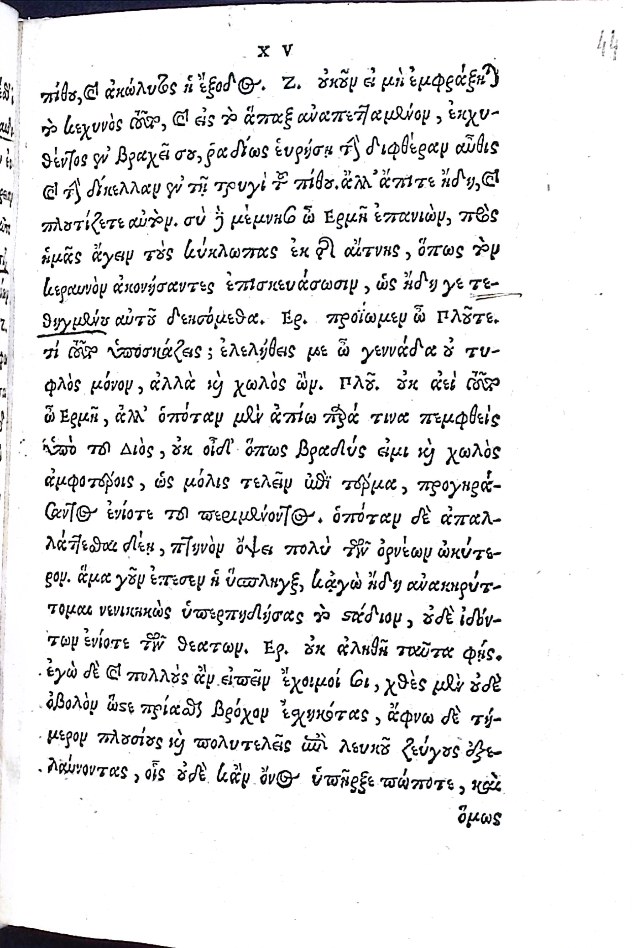 X V
44
πίθου, καὶ ἀκώλυτος ἡ ἔξοδος. Ζ. οὐκοῦν εἰ μὴ ἐμφράξηται
τὸ κεχηνὸς τοῦτο, καὶ εἰς τὸ ἅπαξ ἀναπεπταμένον, ἐκχυ-
θέντος ἐν βραχεῖ σου, ῥαδίως εὑρήσῃ τὴν διφθέραν αὖθις
καὶ τὴν δίκελλαν ἐν τῇ τρυγὶ τοῦ πίθου. ἀλλ' ἄπιτε ἤδη, καὶ
πλουτίζετε αὐτόν. σὺ δὲ μέμνησο ὦ Ἑρμῆ ἐπανιὼν, πρὸς
ἡμᾶς ἄγειν τοὺς κύκλωπας ἐκ τῆς αἴτνης, ὅπως τὸν
κεραυνὸν ἀκονήσαντες ἐπισκευάσωσιν, ὡς ἤδη γε τε-
θηγμένου αὐτοῦ δεησόμεθα. Ερ. προΐωμεν ὦ Πλοῦτε.
τί τοῦτο ὑποσκάζεις; ἐλελήθεις με ὦ γεννάδα οὐ τυ-
φλὸς μόνον, ἀλλὰ καὶ χωλὸς ὤν. Πλοῦ. οὐκ ἀεὶ τοῦτο
ὦ Ἑρμῆ, ἀλλ' ὁπόταν μὲν ἀπίω παρά τινα πεμφθεὶς
ὑπὸ τοῦ Διὸς, οὐκ οἶδ' ὅπως βραδύς εἰμι καὶ χωλὸς
ἀμφοτέροις, ὡς μόλις τελεῖν ἐπὶ τέρμα, προγηρά-
σαντος ἐνίοτε τοῦ περιμένοντος. ὁπόταν δὲ ἀπαλ-
λάττεσθαι δέῃ, πτηνὸν ὄψει πολὺ τῶν ὀρνέων ὠκύτε-
ρον. ἅμα γοῦν ἔπεσεν ἡ ὕσπληγξ, κἀγὼ ἤδη ἀνακηρύτ-
τομαι νενικηκὼς ὑπερπηδήσας τὸ στάδιον, οὐδὲ ἰδόν-
των ἐνίοτε τῶν θεατων. Ερ. οὐκ ἀληθῆ ταῦτα φής.
ἐγὼ δὲ καὶ πολλοὺς ἂν εἰπεῖν ἔχοιμί σοι, χθὲς μὲν οὐδὲ
ὀβολὸν ὥστε πρίασθαι βρόχον ἐσχηκότας, ἄφνω δὲ τή-
μερον πλουσίους καὶ πολυτελεῖς ἐπὶ λευκοῦ ζεύγους ἐξε-
λαύνοντας, οἷς οὐδὲ κἂν ὄνος ὑπῆρξε πώποτε, καὶ
ὅμως